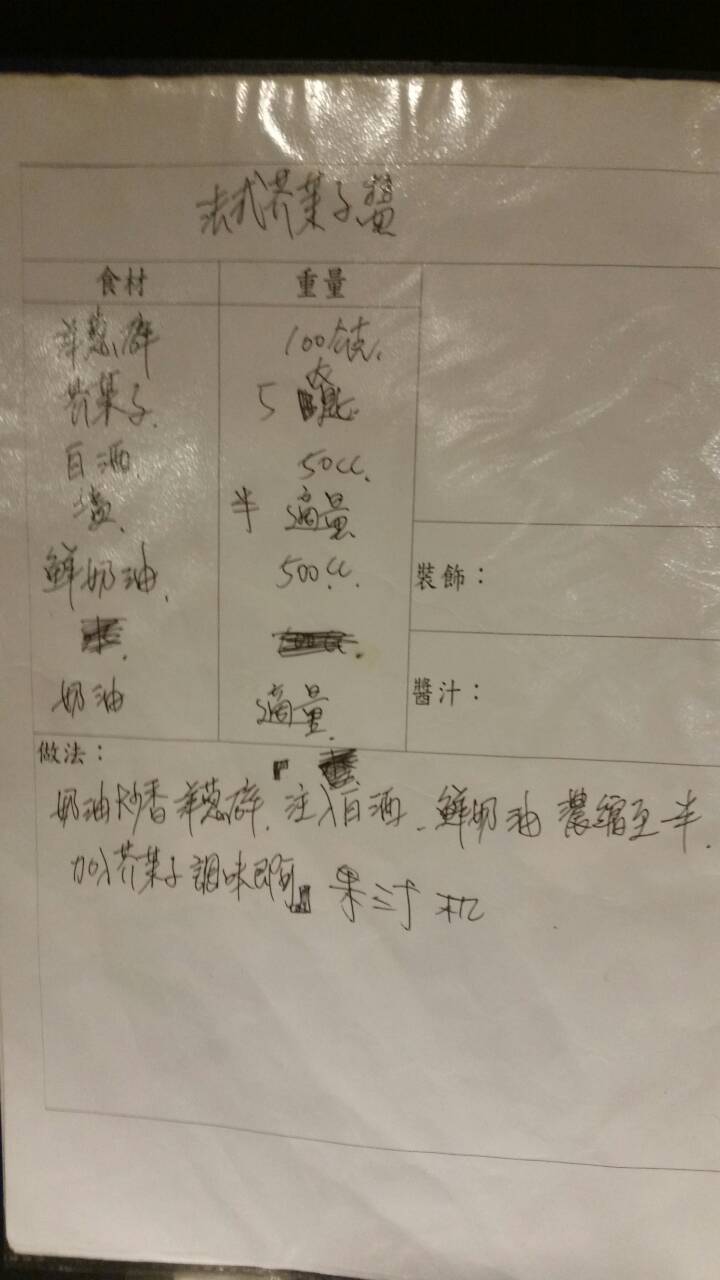 法式芥茉子醬
食材 重量
洋蔥碎 100公克.
芥茉子. 5 大匙.
白酒. 50cc.
鹽. 半 適量
鮮奶油. 500cc.
裝飾：
奶油 適量.
醬汁：
做法：
奶油炒香洋蔥碎. 注入白酒. 鮮奶油 濃縮至半.
加入芥茉子調味即可. 果汁机